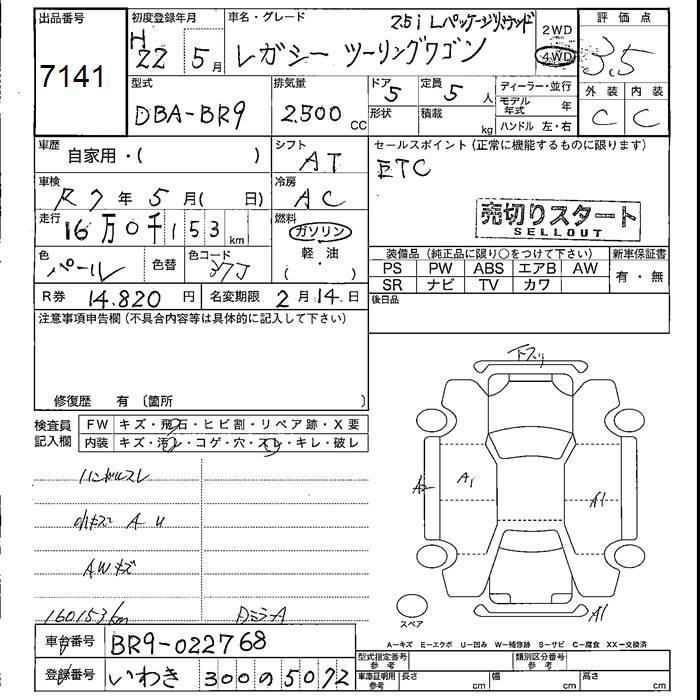 出品番号
7141
初度登録年月
H22 5月
車名・グレード
2.5i Lパッケージリミテッド
レガシー ツーリングワゴン
2WD
4WD
評価点
3.5
型式
DBA-BR9
排気量
2.500 CC
ドア 5
形状
定員 5 人
積載 kg
ディーラー・並行
モデル年式 年
ハンドル 左・右
外装 内装
C C
車歴
自家用・( )
シフト
AT
セールスポイント(正常に機能するものに限ります)
ETC
車検
R7年5月( 日)
冷房
AC
売切りスタート
SELLOUT
走行
16万0千153km
燃料
ガソリン
軽・油
( )
色
パール
色替
色コード
37J
装備品(純正品に限り○をつけて下さい)
新車保証書
PS PW ABS エアB AW
SR ナビ TV カワ
有・無
R券 14.820 円
名変期限 2月14日
後日品
注意事項申告欄(不具合内容等は具体的に記入して下さい)
修復歴 有〔箇所 〕
検査員記入欄
FW キズ・飛石・ヒビ割・リペア跡・X要
内装 キズ・汚レ・コゲ・穴・スレ・キレ・破レ
ハンドルスレ
小キズ A U
AWキズ
160153km
Dミラ-A
下スリ
A2
A1
A1
A1
スペア
A-キズ E-エクボ U-凹み W-補修跡 S-サビ C-腐食 XX-交換済
車台番号
BR9-022768
登録番号
いわき 300 の 5072
型式指定番号 参考
類別区分番号 参考
車庫証明用 参考
長さ cm
幅 cm
高さ cm